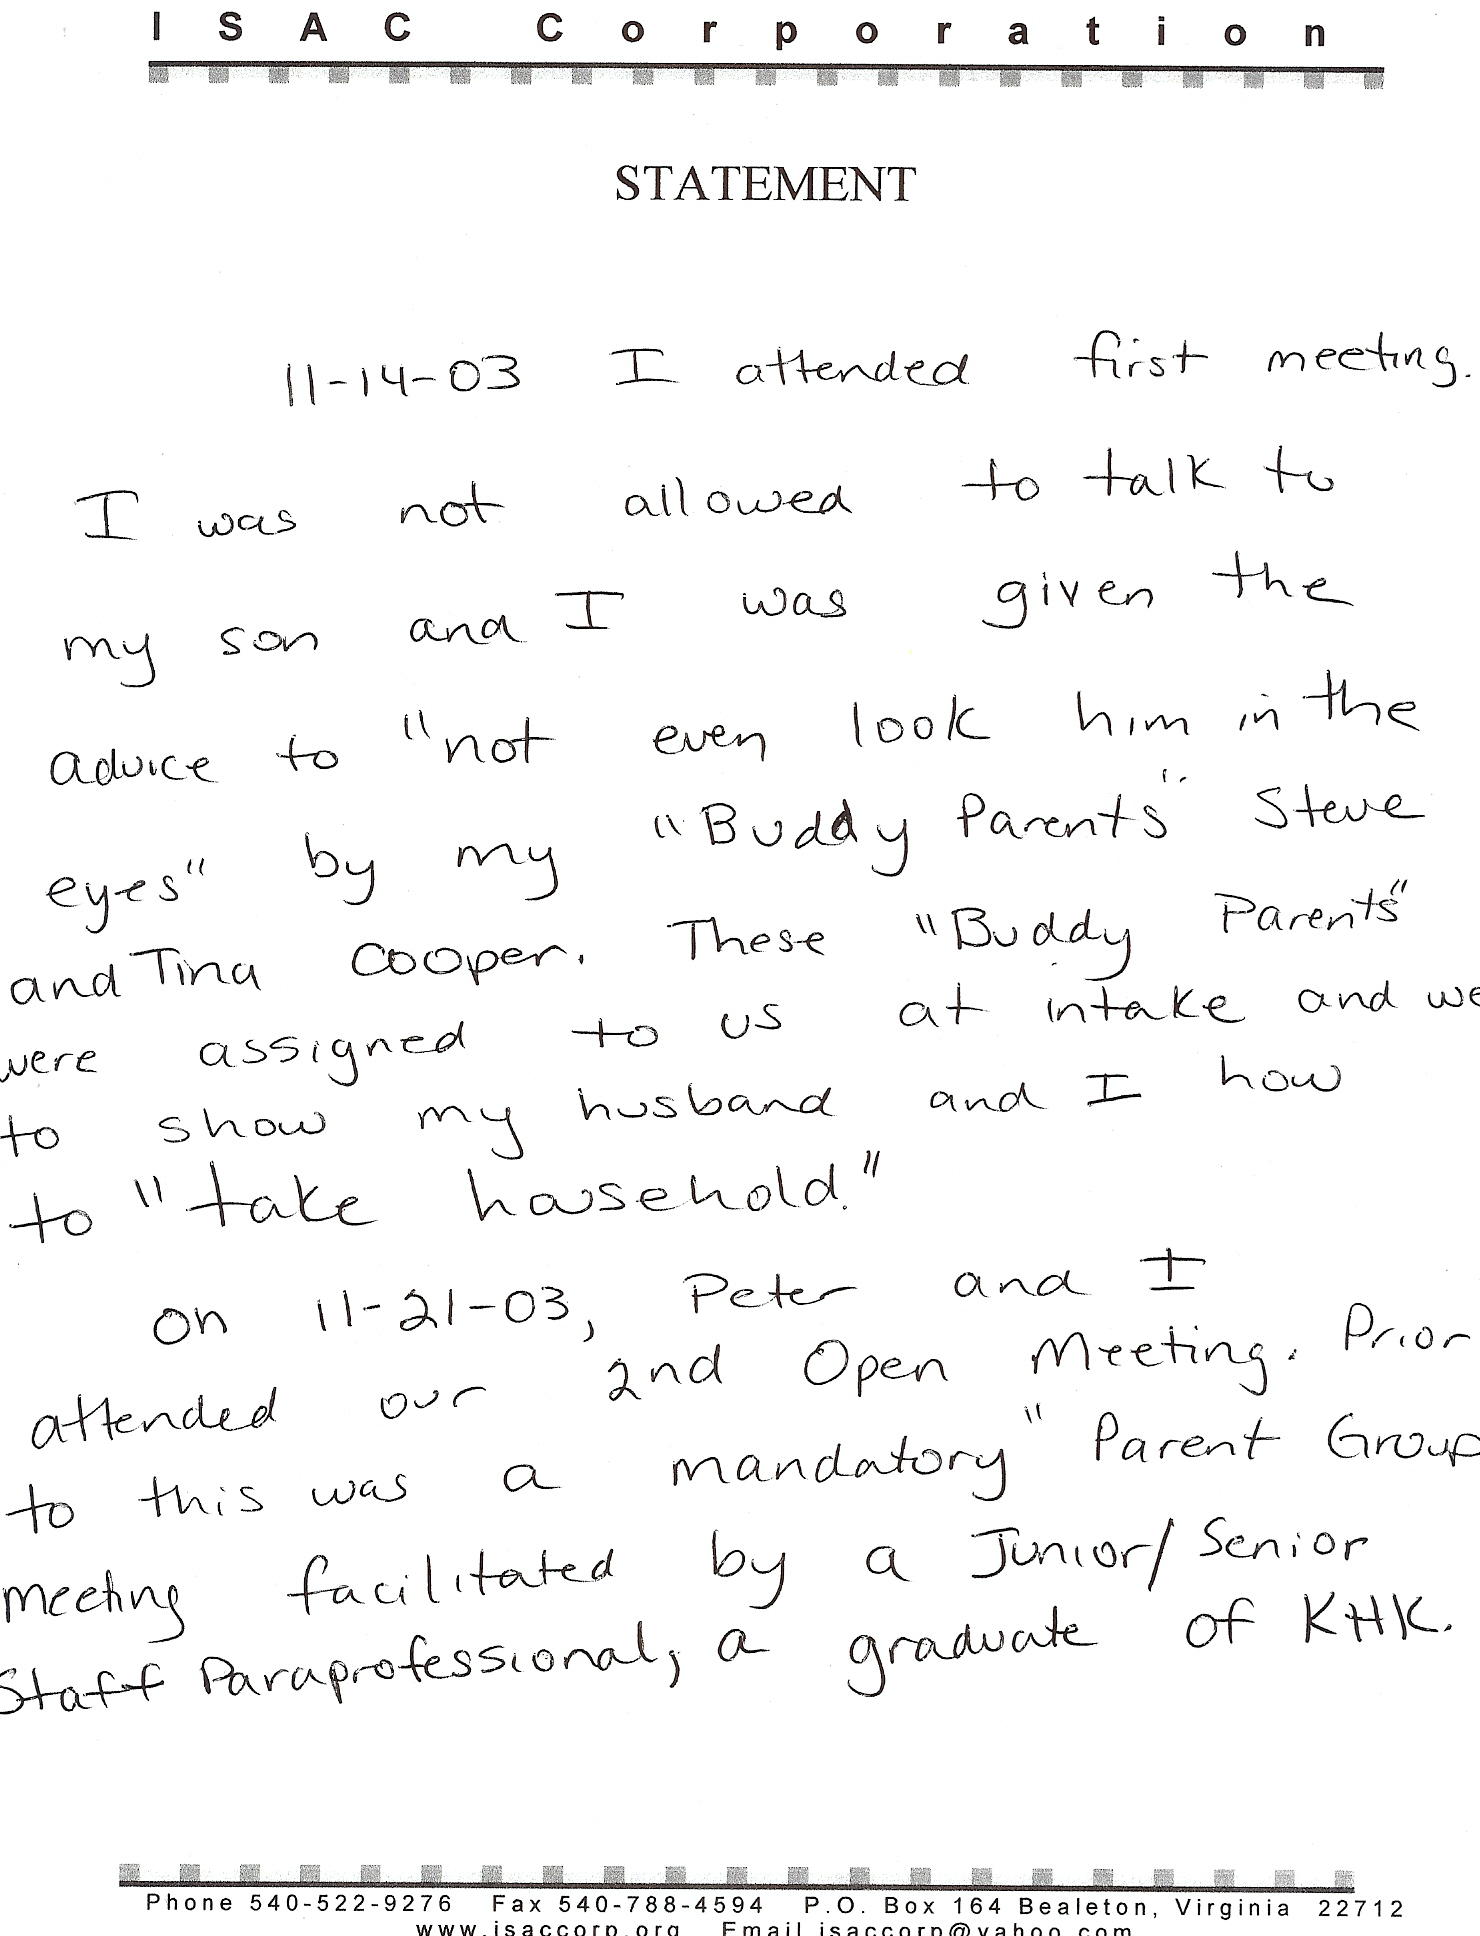 ISAC Corporation
STATEMENT
11-14-03 I attended first meeting.
I was not allowed to talk to
my son and I was given the
advice to "not even look him in the
eyes" by my "Buddy Parents" Steve
and Tina Cooper. These "Buddy Parents"
were assigned to us at intake and we
to show my husband and I how
to "take household."
On 11-21-03, Peter and I
attended our 2nd Open Meeting. Prior
to this was a mandatory "Parent Group
meeting facilitated by a Junior/Senior
Staff Paraprofessional, a graduate of KHK.
Phone 540-522-9276 Fax 540-788-4594 P.O. Box 164 Bealeton, Virginia 22712
www.isaccorp.org Email isaccorp@yahoo.com